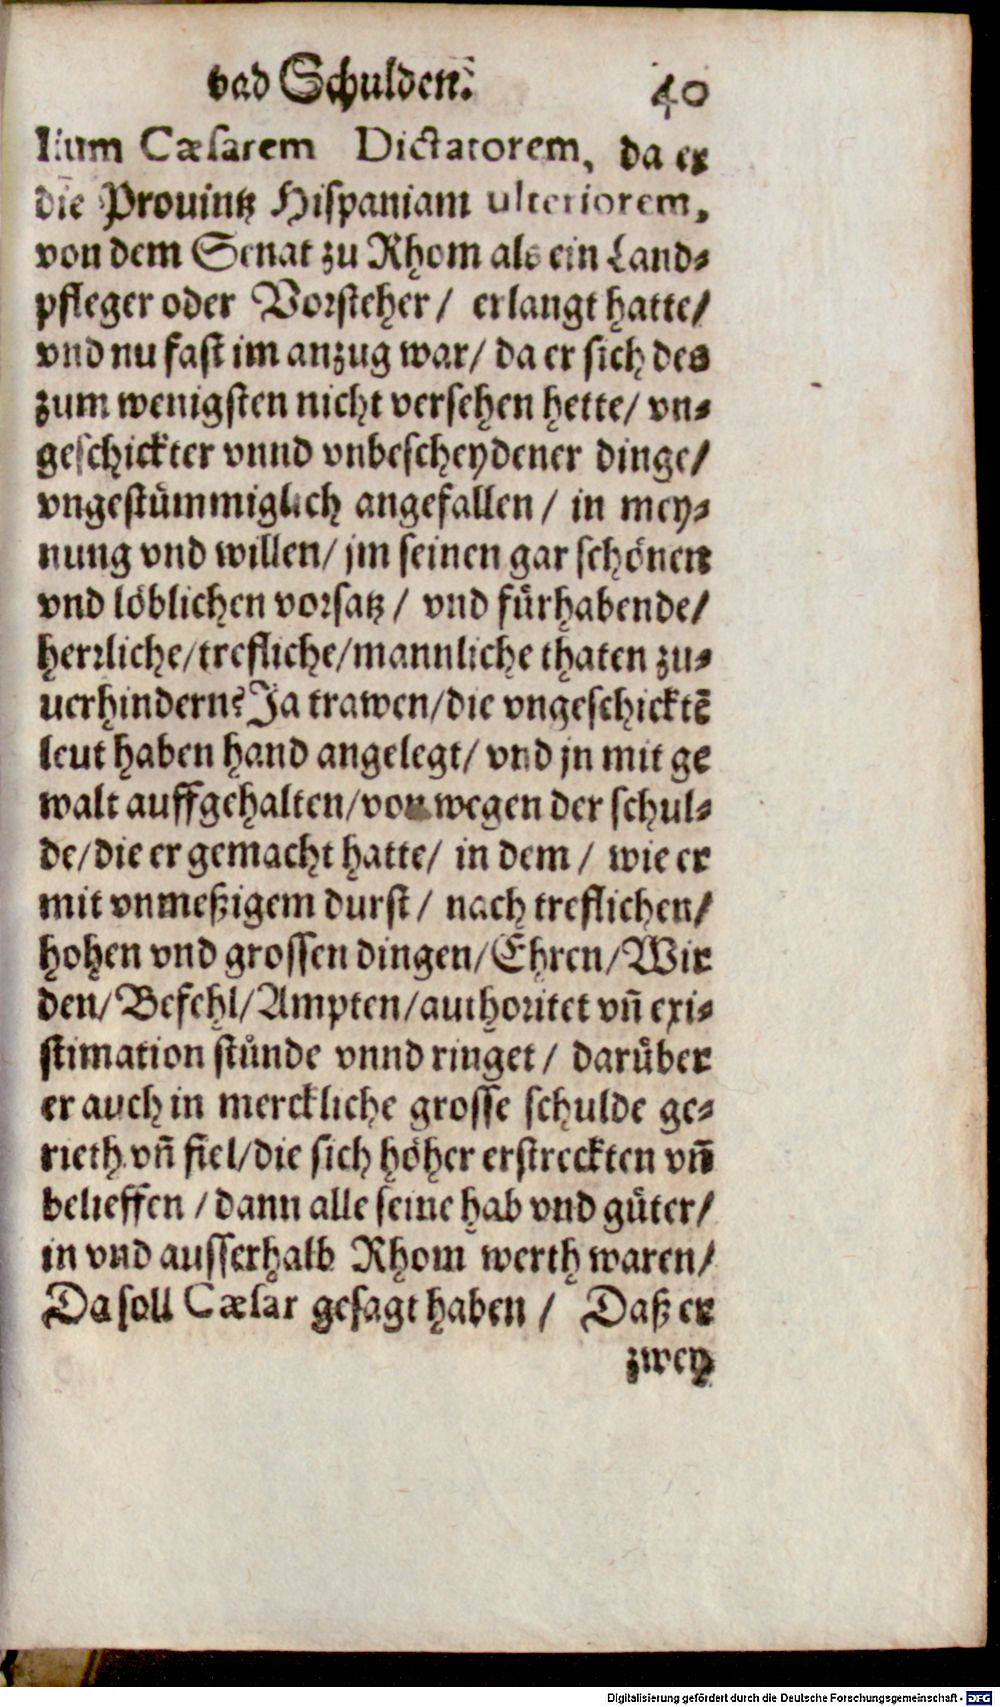 vnd Schulden. 40
lium Cæsarem Dictatorem, da er
die Prouintz Hispaniam ulteriorem,
von dem Senat zu Rhom als ein Land⸗
pfleger oder Vorsteher / erlangt hatte/
vnd nu fast im anzug war/ da er sich des
zum wenigsten nicht versehen hette/ vn⸗
geschickter vnnd vnbescheydener dinge/
vngestümmiglich angefallen / in mey⸗
nung vnd willen/ jm seinen gar schönen
vnd löblichen vorsatz / vnd fürhabende/
herrliche/trefliche/mannliche thaten zu⸗
uerhindern? Ja trawen/die vngeschicktē
leut haben hand angelegt/ vnd jn mit ge
walt auffgehalten/von wegen der schul⸗
de/die er gemacht hatte/ in dem / wie er
mit vnmeßigem durst / nach treflichen/
hohen vnd grossen dingen/Ehren/Wir
den/Befehl/Ampten/authoritet vn̄ exi⸗
stimation stünde vnnd ringet / darüber
er auch in merckliche grosse schulde ge⸗
rieth vn̄ fiel/die sich höher erstreckten vn̄
belieffen / dann alle seine hab vnd güter/
in vnd ausserhalb Rhom werth waren/
Da soll Cæsar gesagt haben / Daß er
zwey
Digitalisierung gefördert durch die Deutsche Forschungsgemeinschaft - DFG